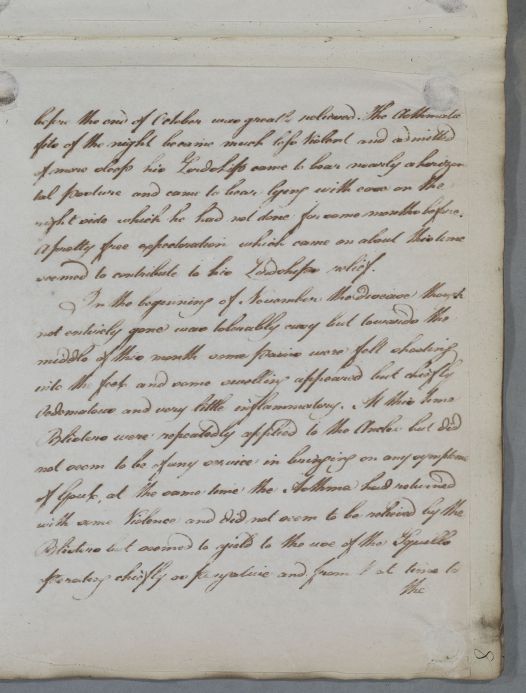 before the end of October was greatly relieved. The Asthmatic
fits of the night became much less Violent and admitted
of more sleep his Lordship came to bear nearly a horizon
tal posture and came to bear lying with ease on the
right side which he had not done for some months before.
A pretty free expectoration which came on about this time
seemed to contribute to his Lordships relief.
In the beginning of November the disease though
not entirely gone was tolerably easy but towards the
middle of this month some pains were felt shooting
into the feet and some swelling appeared but chiefly
Oedematous and very little inflammatory. At this time
Blisters were repeatedly applied to the Ancles but did
not seem to be of any service in bringing on any symptoms
of Gout, at the same time the Asthma had returned
with some Violence and did not seem to be relieved by the
Blisters but seemed to yield to the use of the Squills
operating chiefly as purgative and from that time to
the
8